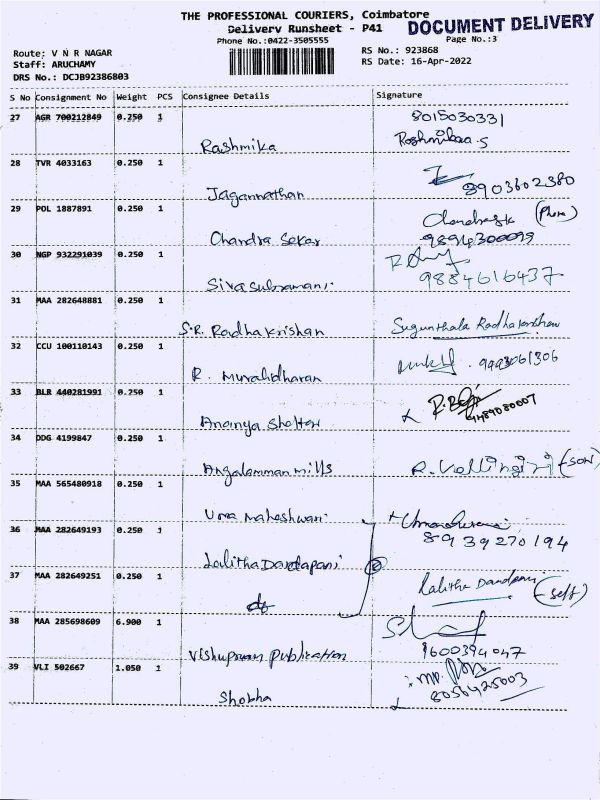 THE PROFESSIONAL COURIERS, Coimbatore
DOCUMENT DELIVERY
Delivery Runsheet - P41
Phone No.:0422-3505555
Page No.:3
Route; V N R NAGAR
RS No.: 923868
Staff: ARUCHAMY
RS Date: 16-Apr-2022
DRS No.: DCJB92386803
S No Consignment No Weight PCS Consignee Details Signature
27 AGR 700212849 0.250 1 8015030331
Rashmika Rashmikaa.S
28 TVR 4033163 0.250 1
Jagannathan 8903602380
29 POL 1887891 0.250 1 (Phone)
Chandra Sekar 9894300099
30 NGP 932291039 0.250 1
Sivasubramani. 9884616437
31 MAA 282648881 0.250 1
S.R. Radhakrishan Sugunthala Radhakrishnan
32 CCU 100110143 0.250 1
R. Muralidharan 9993061306
33 BLR 440281991 0.250 1
Ananya Shelton 9489080007
34 DDG 4199847 0.250 1
Angalamman mills R. Vellingiri (SON)
35 MAA 565480918 0.250 1
Uma Maheshwari
36 MAA 282649193 0.250 1 8939270194
Lalitha Dandapani
37 MAA 282649251 0.250 1 Lalitha Dandapani (self)
do
38 MAA 285698609 6.900 1
Vishupuram Publication 9600394047
39 VLI 502667 1.050 1
Shobha 8056425003